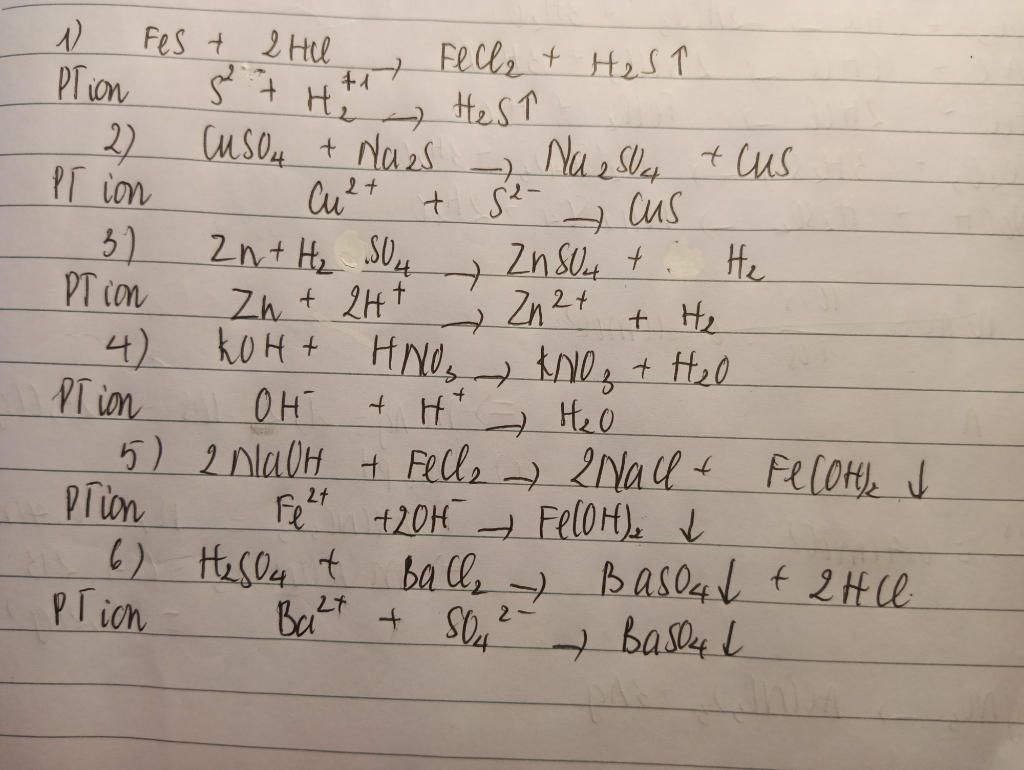 1) FeS + 2HCl → FeCl₂ + H₂S↑
PT ion S²⁻ + H₂⁺¹ → H₂S↑
2) CuSO₄ + Na₂S → Na₂SO₄ + CuS
PT ion Cu²⁺ + S²⁻ → CuS
3) Zn + H₂SO₄ → ZnSO₄ + H₂
PT ion Zn + 2H⁺ → Zn²⁺ + H₂
4) KOH + HNO₃ → KNO₃ + H₂O
PT ion OH⁻ + H⁺ → H₂O
5) 2NaOH + FeCl₂ → 2NaCl + Fe(OH)₂ ↓
PT ion Fe²⁺ + 2OH⁻ → Fe(OH)₂ ↓
6) H₂SO₄ + BaCl₂ → BaSO₄↓ + 2HCl
PT ion Ba²⁺ + SO₄²⁻ → BaSO₄↓